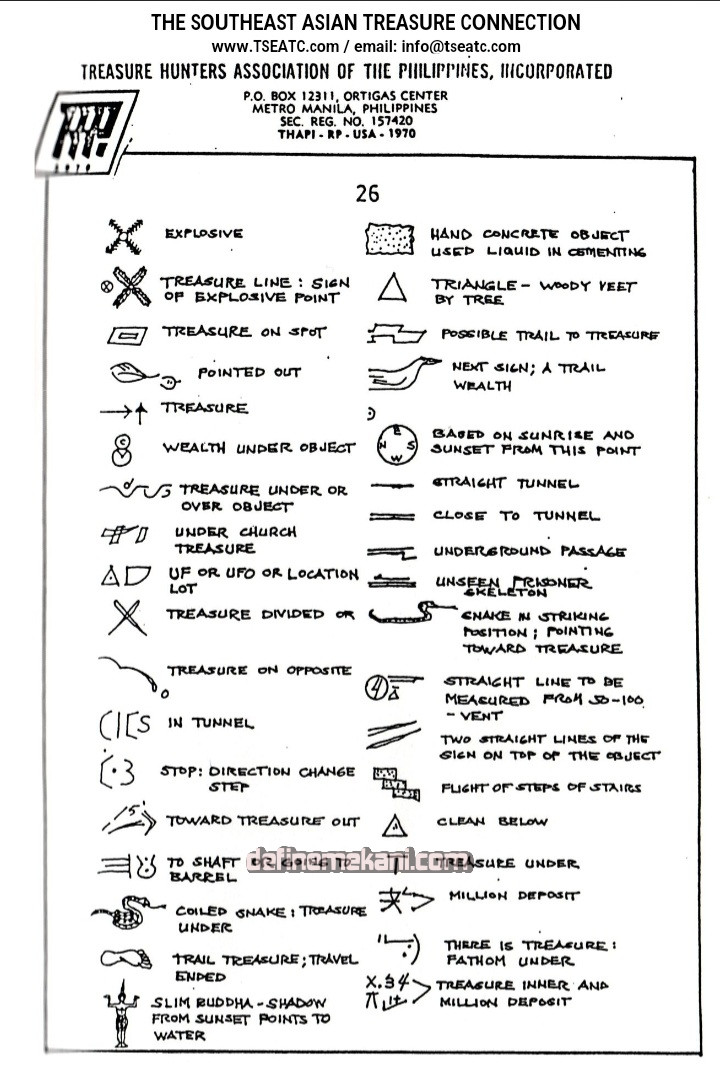 THE SOUTHEAST ASIAN TREASURE CONNECTION
www.TSEATC.com / email: info@tseatc.com
TREASURE HUNTERS ASSOCIATION OF THE PHILIPPINES, INCORPORATED
P.O. BOX 12311, ORTIGAS CENTER
METRO MANILA, PHILIPPINES
SEC. REG. NO. 157420
THAPI - RP - USA - 1970
26
EXPLOSIVE
TREASURE LINE : SIGN
OF EXPLOSIVE POINT
TREASURE ON SPOT
POINTED OUT
TREASURE
WEALTH UNDER OBJECT
TREASURE UNDER OR
OVER OBJECT
UNDER CHURCH
TREASURE
UF OR UFO OR LOCATION
LOT
TREASURE DIVIDED OR
TREASURE ON OPPOSITE
IN TUNNEL
STOP: DIRECTION CHANGE
STEP
TOWARD TREASURE OUT
TO SHAFT OR GOING TO
BARREL
COILED SNAKE: TREASURE
UNDER
TRAIL TREASURE; TRAVEL
ENDED
SLIM BUDDHA - SHADOW
FROM SUNSET POINTS TO
WATER
HAND CONCRETE OBJECT
USED LIQUID IN CEMENTING
TRIANGLE - WOODY VEET
BY TREE
POSSIBLE TRAIL TO TREASURE
NEXT SIGN; A TRAIL
WEALTH
E
N S
W
BASED ON SUNRISE AND
SUNSET FROM THIS POINT
STRAIGHT TUNNEL
CLOSE TO TUNNEL
UNDERGROUND PASSAGE
UNSEEN PRISONER
SKELETON
SNAKE IN STRIKING
POSITION; POINTING
TOWARD TREASURE
4
STRAIGHT LINE TO BE
MEASURED FROM 50-100
- VENT
TWO STRAIGHT LINES OF THE
SIGN ON TOP OF THE OBJECT
FLIGHT OF STEPS OF STAIRS
CLEAN BELOW
TREASURE UNDER
MILLION DEPOSIT
THERE IS TREASURE:
FATHOM UNDER
X.34
TREASURE INNER AND
MILLION DEPOSIT
definemekani.com